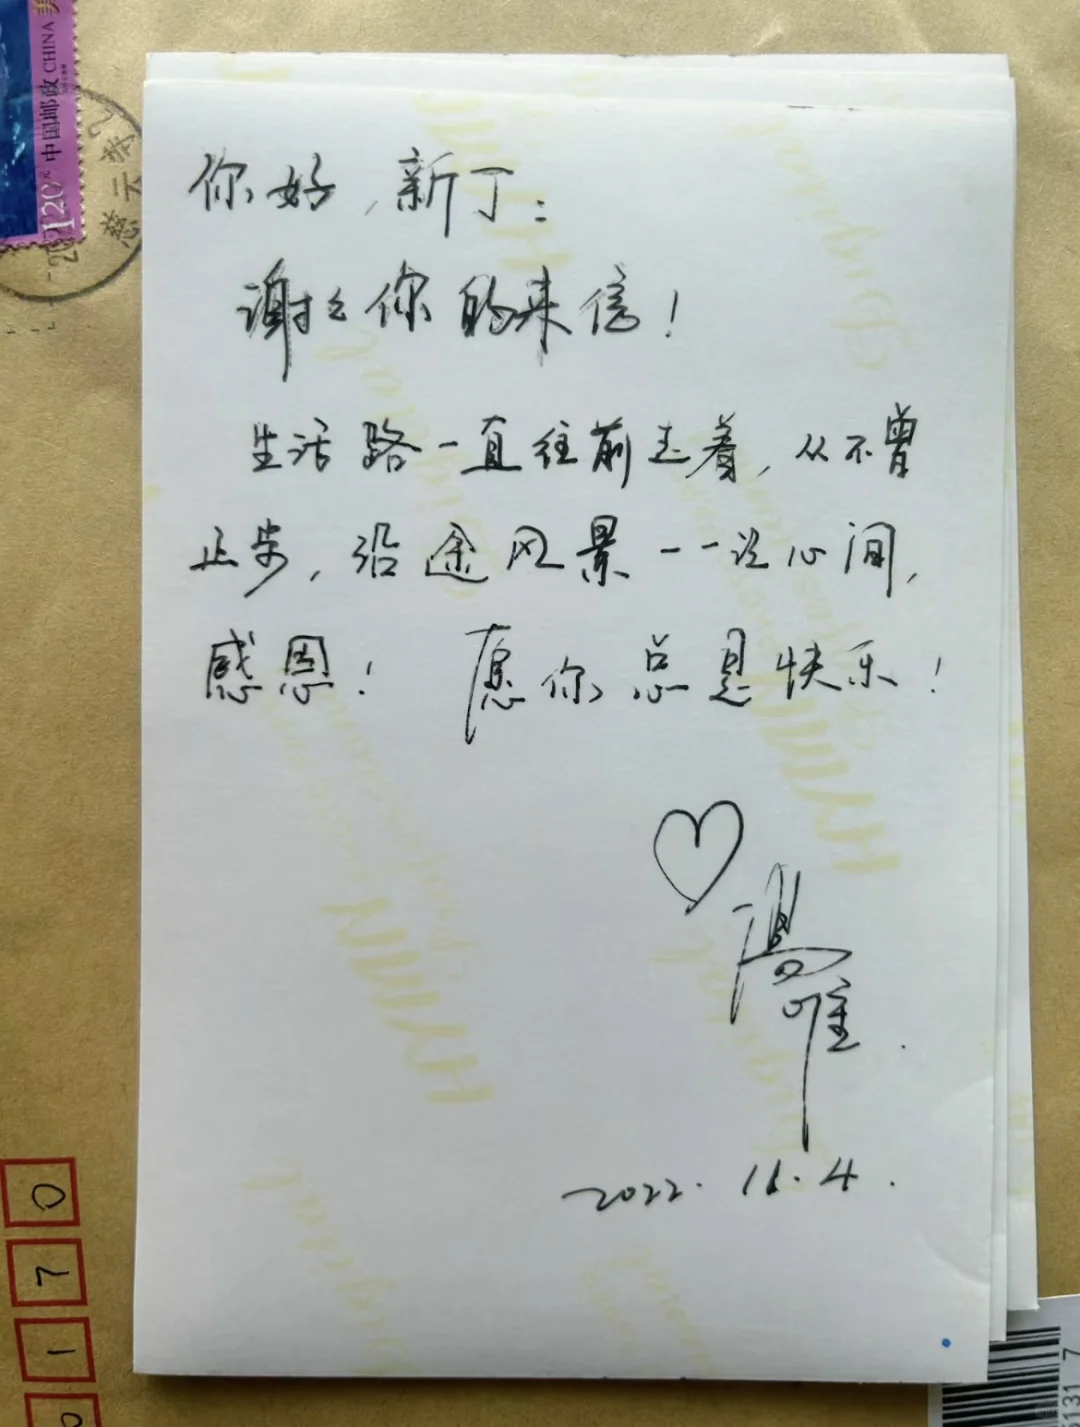 中国邮政 CHINA
120
慈云寺
你好，新丁：
谢谢你的来信！
生活路一直往前走着，从不曾
止步，沿途风景一一心间，
感恩！ 愿你总是快乐！
汤唯.
2022. 11. 4.
0
7
1
0
131 7